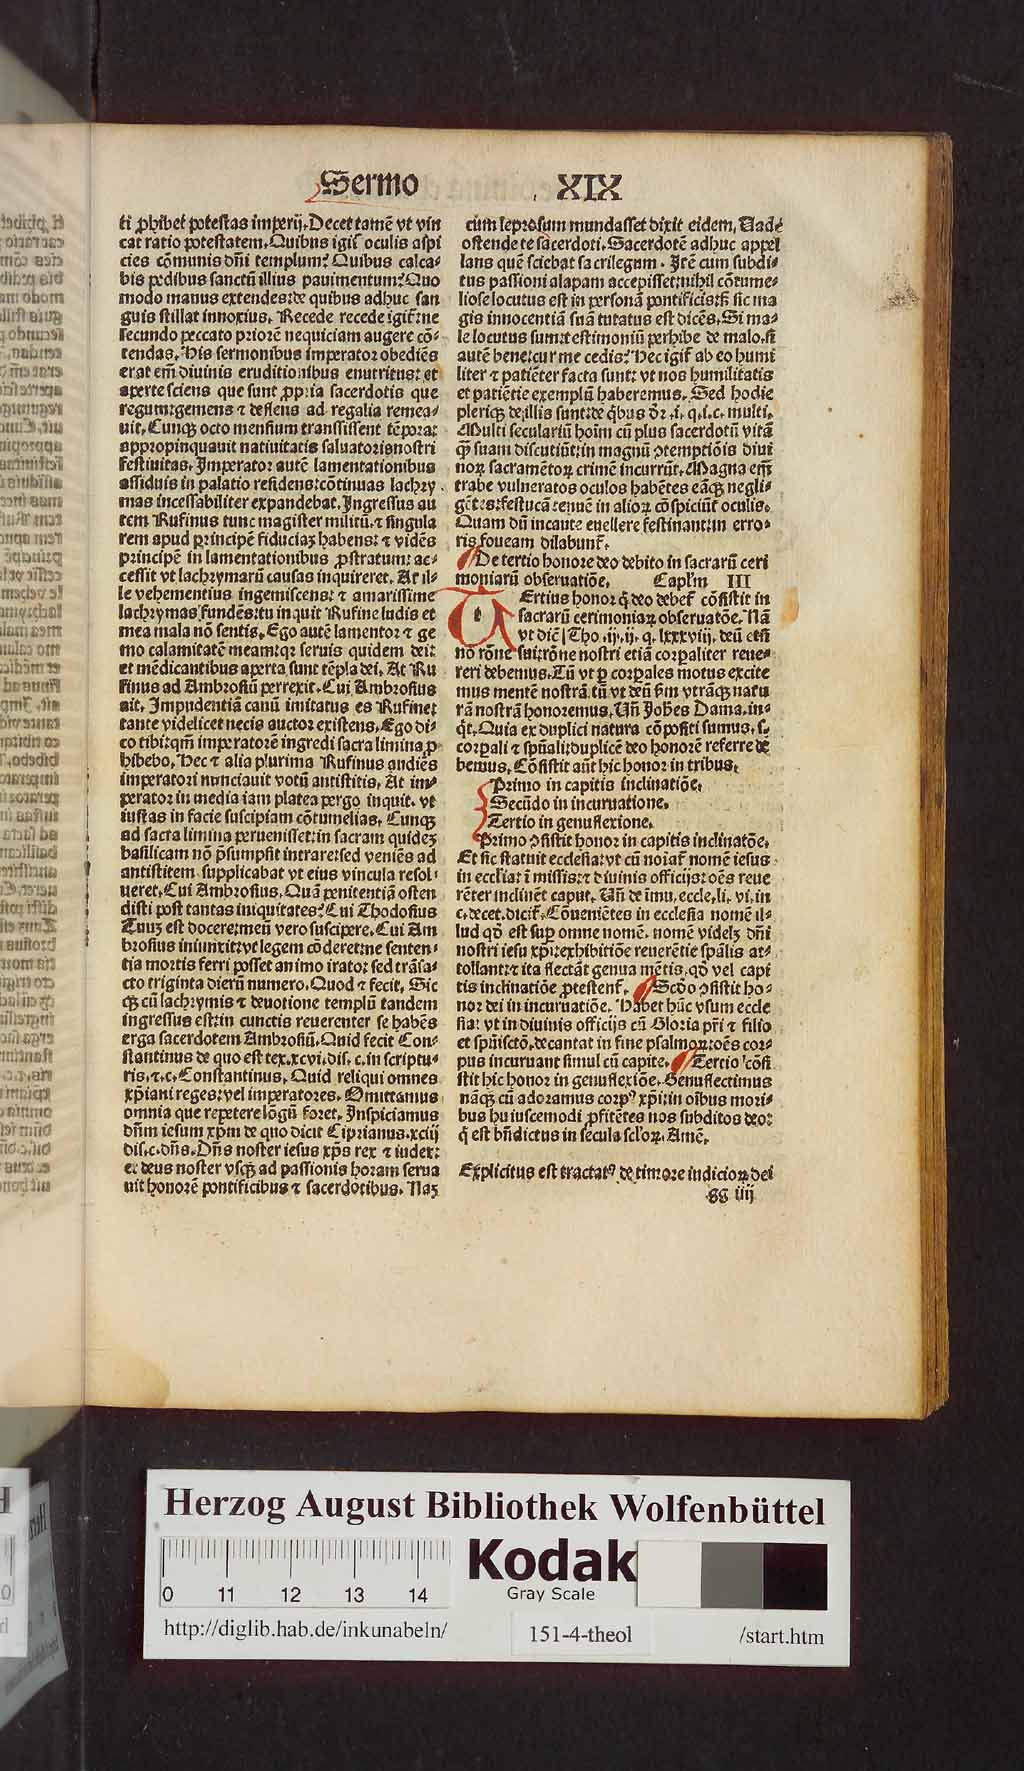 Sermo XIX
ti ꝓhibet potestas imperij. Decet tamē vt vin
cat ratio potestatem. Quibus igit᷑ oculis aspi
cies cōmunis dn̄i templum? Quibus calca-
bis pedibus sanctū illius pauimentum? Quo
modo manus extendes: de quibus adhuc san
guis stillat innoxius. Recede recede igit᷑: ne
secundo peccato priorē nequiciam augere cō-
tendas. His sermonibus imperator obediēs
erat em̄ diuinis eruditionibus enutritus: et
aperte sciens que sunt ꝓpria sacerdotis que
regum: gemens ⁊ deflens ad regalia remea-
uit. Cunqꝫ octo mensium transissent tēpora:
appropinquauit natiuitatis saluatoris nostri
festiuitas. Imperator autē lamentationibus
assiduis in palatio residens: cōtinuas lachry
mas incessabiliter expandebat. Ingressus au
tem Rufinus tunc magister militū. ⁊ singula
rem apud principē fiduciaꝫ habens: ⁊ vidēs
principē in lamentationibus ꝓstratum: ac-
cessit vt lachrymarū causas inquireret. At il-
le vehementius ingemiscens: ⁊ amarissime
lachrymas fundēs: tu inquit Rufine ludis et
mea mala nō sentis. Ego autē lamentor ⁊ ge
mo calamitatē meam: qꝛ seruis quidem dei:
et mēdicantibus aperta sunt tēpla dei. At Ru
finus ad Ambrosiū perrexit. Cui Ambrosius
ait. Impudentiā canū imitatus es Rufine:
tante videlicet necis auctor existens. Ego di-
co tibi: qm̄ imperatorē ingredi sacra limina ꝓ
hibebo. Hec ⁊ alia plurima Rufinus audiēs
imperatori nunciauit votū antistitis. At im-
perator in media iam platea pergo inquit. vt
iustas in facie suscipiam cōtumelias. Cunqꝫ
ad sacra limina peruenisset: in sacram quideꝫ
basilicam nō p̄sumpsit intrare: sed veniēs ad
antistitem supplicabat vt eius vincula resol-
ueret. Cui Ambrosius. Quā penitentiā osten
disti post tantas iniquitates? Cui Thodosius
Tuuꝫ est docere: meū vero suscipere. Cui Am
brosius iniunxit: vt legem cōderet: ne senten-
tia mortis ferri posset animo irato: sed trāsa-
cto triginta dierū numero. Quod ⁊ fecit. Sic
qꝫ cū lachrymis ⁊ deuotione templū tandem
ingressus est: in cunctis reuerenter se habēs
erga sacerdotem Ambrosiū. Quid fecit Con-
stantinus de quo est tex. xcvi. dis. c. in scriptu-
ris. ⁊. c. Constantinus. Quid reliqui omnes
xp̄iani reges: vel imperatores. Omittamus
omnia que repetere lōgū foret. Inspiciamus
dn̄m iesum xp̄m de quo dicit Ciprianus. xciij
dis. c. dn̄s. Dn̄s noster iesus xp̄s rex ⁊ iudex:
et deus noster vsqꝫ ad passionis horam serua
uit honorē pontificibus ⁊ sacerdotibus. Naꝫ
cum leprosum mundasset dixit eidem. Uade
ostende te sacerdoti. Sacerdotē adhuc appel
lans quē sciebat sacrilegum. Itē cum subdi-
tus passioni alapam accepisset: nihil cōtume-
liose locutus est in personā pontificis: sꝫ sic ma
gis innocentiā suā tutatus est dicēs. Si ma-
le locutus sum: testimoniū perhibe de malo. si
autē bene: cur me cedis? Hec igit᷑ ab eo humi
liter ⁊ patiēter facta sunt: vt nos humilitatis
et patiētie exemplū haberemus. Sed hodie
pleriqꝫ de illis sunt: de q̇bus dr̄. i. q. i. c. multi.
Multi seculariū hoīm cū plus sacerdotū vitā
qꝫ suam discutiūt: in magnū ꝯtemptiōis diui
noꝝ sacramētoꝝ crimē incurrūt. Magna em̄
trabe vulneratos oculos habētes eāqꝫ negli-
gētes: festucā tenuē in alioꝝ cōspiciūt oculis.
Quam dū incaute euellere festinant: in erro-
ris foueam dilabunt᷑.
De tertio honore deo debito in sacrarū ceri
moniarū obseruatiōe. Caplm̄ III
Ertius honor q̇ deo debet᷑ cōsistit in
sacrarū cerimoniaꝝ obseruatōe. Nā
vt dic̄ Tho. ij. ij. q. lxxxviij. deū etsi
no rōne sui: rōne nostri etiā corꝑaliter reue-
reri debemus. Tū vt ꝑ corꝑales motus excite
mus mentē nostrā. tū vt deū ẜm vtrāqꝫ natu
rā nostrā honoremus. Un̄ Joh̄es Dama. in-
q̇t. Quia ex duplici natura cōpositi sumus. s.
corꝑali ⁊ spūali: duplicē deo honorē referre de
bemus. Cōsistit aūt hic honor in tribus.
Primo in capitis inclinatiōe.
Secūdo in incuruatione.
Tertio in genuflexione.
Primo ꝯsistit honor in capitis inclinatōe.
Et sic statuit ecclesia: vt cū noīat᷑ nomē iesus
in ecclīa: ī missis: ⁊ diuinis officijs: oēs reue
rēter inclinēt caput. Un̄ de īmu. eccle. li. vi. in
c. decet. dicit᷑. Cōueniētes in ecclesia nomē il-
lud qḋ est suꝑ omne nomē. nomē videlꝫ dn̄i
nostri iesu xp̄i: exhibitiōe reuerētie spālis at-
tollant: ⁊ ita flectāt genua mētis. qḋ vel capi
tis inclinatiōe ꝓtestent᷑. Scḋo ꝯsistit ho-
nor dei in incuruatiōe. Habet hūc vsum eccle
sia: vt in diuinis officijs cū Gloria pr̄i ⁊ filio
et spūisctō. decantat in fine psalmoꝝ: oēs cor-
pus incuruant simul cū capite. Tertio cōsi
stit hic honor in genuflexiōe. Genuflectimus
nāqꝫ cū adoramus corpꝰ xp̄i: in oībus mori-
bus huiuscemodi ꝓfitētes nos subditos deo:
q̇ est bn̄dictus in secula scl̄oꝝ. Amē.
Explicitus est tractatꝰ de timore iudicioꝝ dei
gg iiij
Herzog August Bibliothek Wolfenbüttel
0 11 12 13 14
Kodak
Gray Scale
http://diglib.hab.de/inkunabeln/
151-4-theol
/start.htm